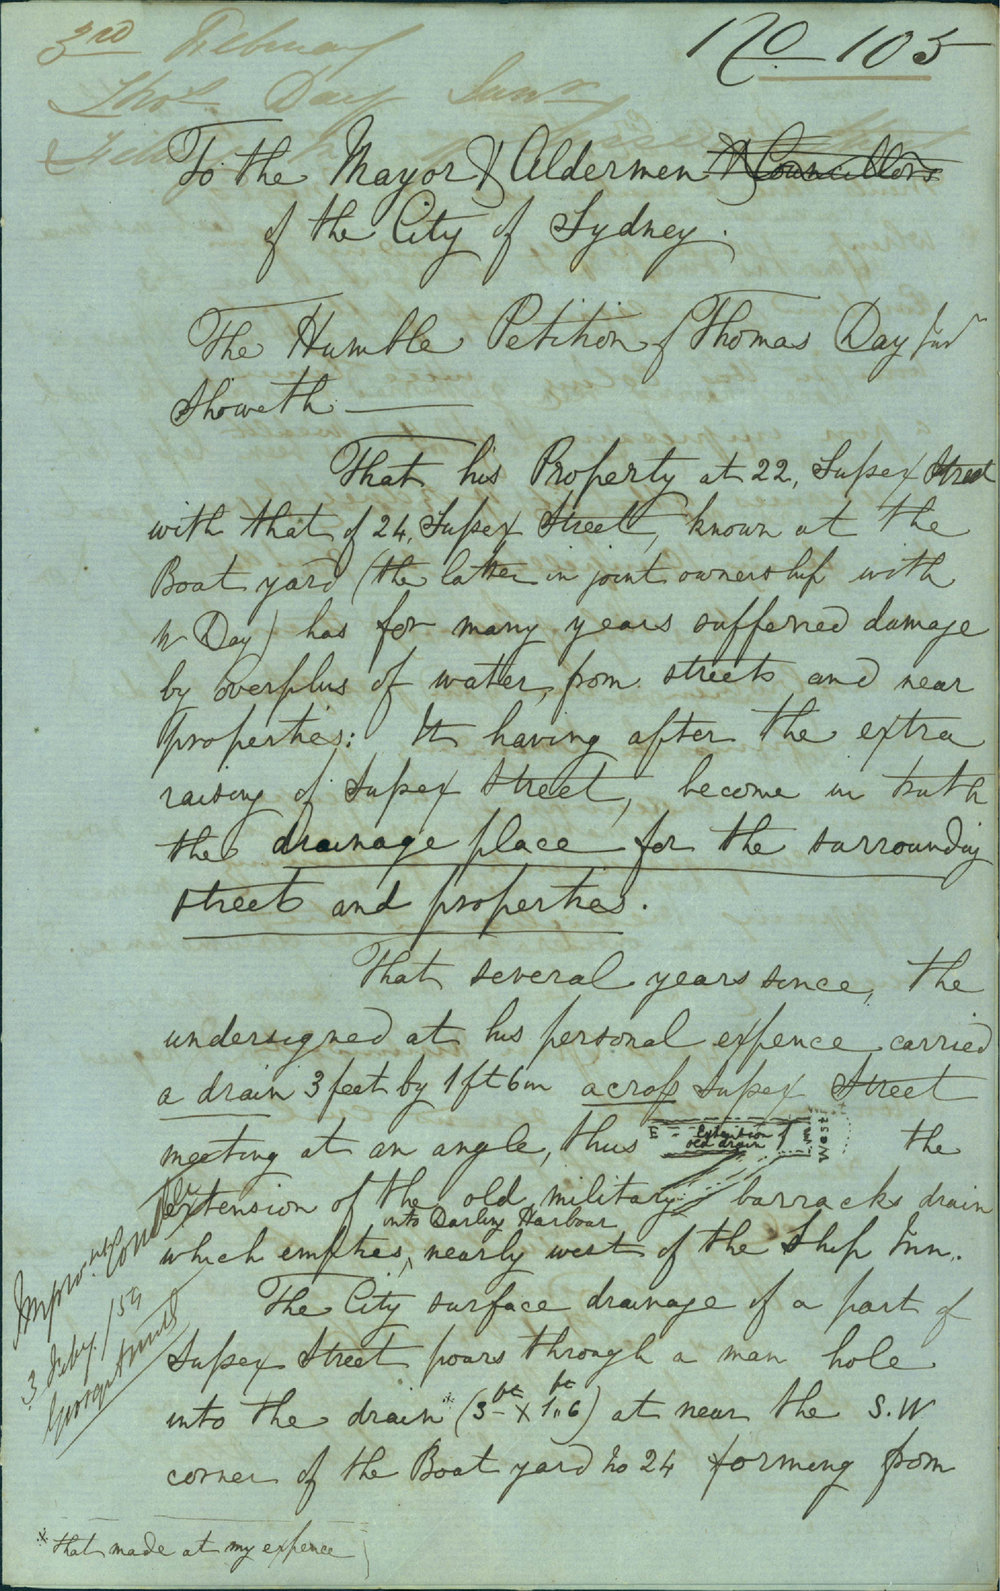 3rd February
No 105
Thos Day Junr
To the Mayor & Aldermen & Councillors
of the City of Sydney.
The Humble Petition of Thomas Day Junr
Showeth —
That his Property at 22, Sussex Street
with that of 24, Sussex Street, known at the
Boat yard (the latter in joint ownership with
W Day) has for many years suffered damage
by overplus of water, from streets and near
properties: It having after the extra
raising of Sussex Street, become in truth
the drainage place for the surrounding
streets and properties.
That several years since, the
undersigned at his personal expence carried
a drain 3 feet by 1ft 6in across Sussex Street
meeting at an angle, thus Extention of old drain West the
extension of the old military barracks drain
which empties, into Darling Harbour nearly west of the Ship Inn.
The City surface drainage of a part of
Sussex Street pours through a man hole
into the drain * (3 ft x 1,,6 ft) at near the S.W
corner of the Boat yard No 24 forming from
* that made at my expence
Improvnts Comttee
3 Feby. / 59